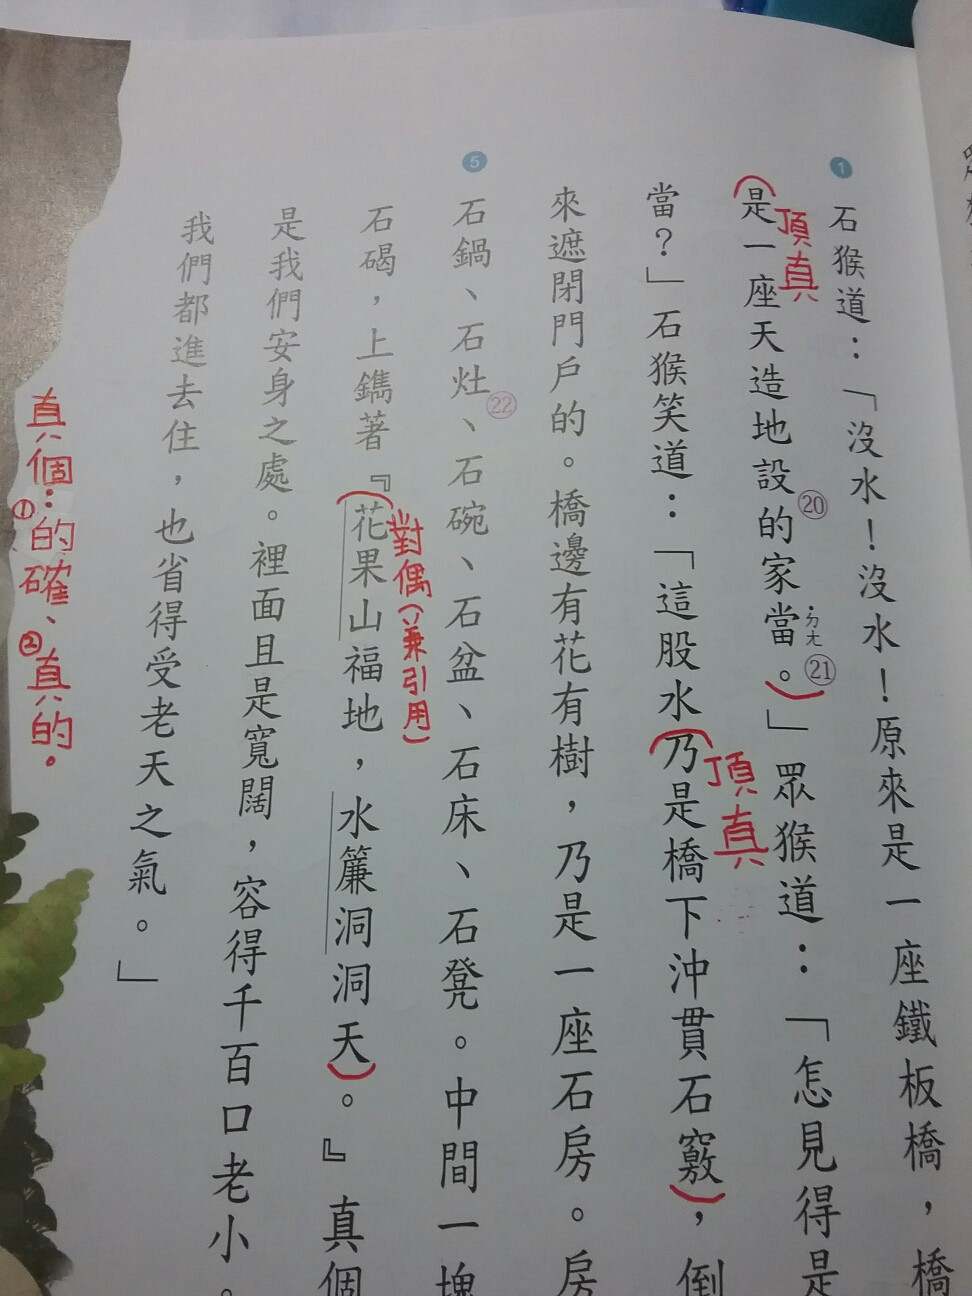 1
石猴道：「沒水！沒水！原來是一座鐵板橋，橋
是一座天造地設⑳的家當㉑。」眾猴道：「怎見得是
ㄉㄤ
頂真
當？」石猴笑道：「這股水乃是橋下沖貫石竅，倒
頂真
來遮閉門戶的。橋邊有花有樹，乃是一座石房。房
5
石鍋、石灶㉒、石碗、石盆、石床、石凳。中間一塊
石碣，上鐫著『花果山福地，水簾洞洞天。』真個
對偶(兼引用)
是我們安身之處。裡面且是寬闊，容得千百口老小。
我們都進去住，也省得受老天之氣。」
真個：①的確、②真的。